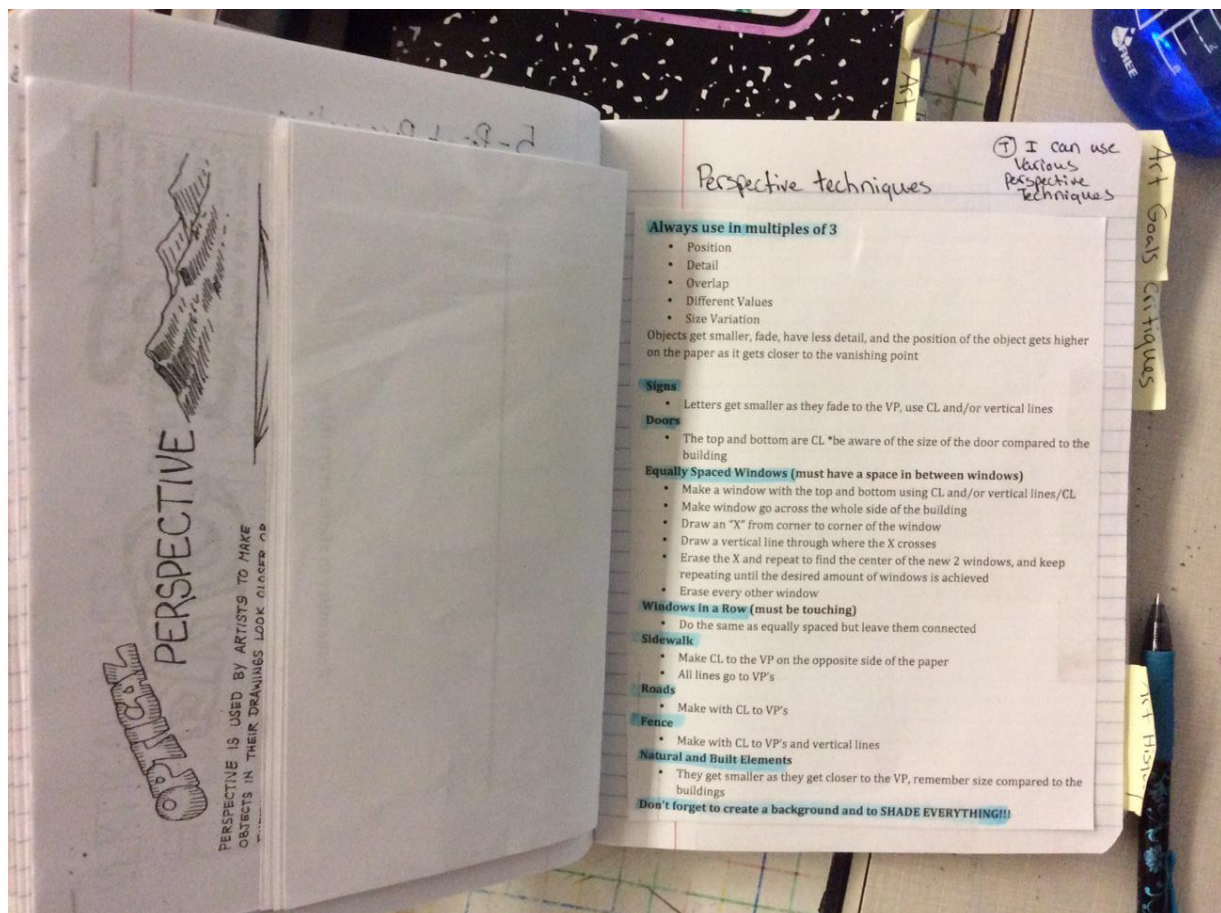 OPTICAL
PERSPECTIVE
PERSPECTIVE IS USED BY ARTISTS TO MAKE
OBJECTS IN THEIR DRAWINGS LOOK CLOSER OR
Perspective techniques
Ⓣ I can use
Various
Perspective
Techniques
Always use in multiples of 3
• Position
• Detail
• Overlap
• Different Values
• Size Variation
Objects get smaller, fade, have less detail, and the position of the object gets higher
on the paper as it gets closer to the vanishing point
Signs
• Letters get smaller as they fade to the VP, use CL and/or vertical lines
Doors
• The top and bottom are CL *be aware of the size of the door compared to the
building
Equally Spaced Windows (must have a space in between windows)
• Make a window with the top and bottom using CL and/or vertical lines/CL
• Make window go across the whole side of the building
• Draw an "X" from corner to corner of the window
• Draw a vertical line through where the X crosses
• Erase the X and repeat to find the center of the new 2 windows, and keep
repeating until the desired amount of windows is achieved
• Erase every other window
Windows in a Row (must be touching)
• Do the same as equally spaced but leave them connected
Sidewalk
• Make CL to the VP on the opposite side of the paper
• All lines go to VP's
Roads
• Make with CL to VP's
Fence
• Make with CL to VP's and vertical lines
Natural and Built Elements
• They get smaller as they get closer to the VP, remember size compared to the
buildings
Don't forget to create a background and to SHADE EVERYTHING!!!
Art
Art Goals Critiques
Art History
FREE